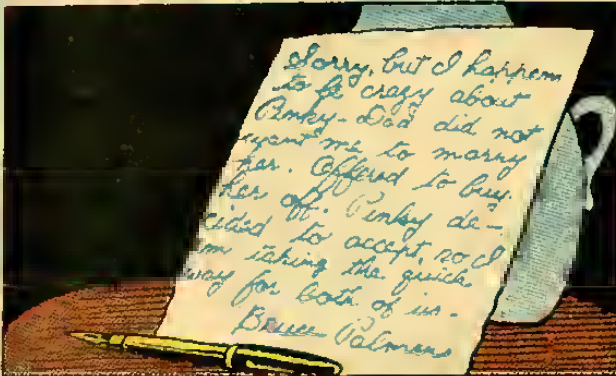 Sorry, but I happen
to be crazy about
Pinky - Dad did not
want me to marry
her. Offered to buy
her off. Pinky de-
cided to accept, so I
am taking the quick
way for both of us -
Bruce Palmer